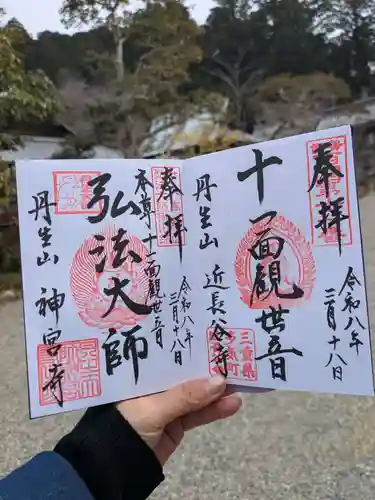 奉拝
令和八年
三月十八日
十一面観世音
丹生山
近長谷寺
奉拝
本尊十一面観世音
令和八年
三月十八日
弘法大師
丹生山
神宮寺